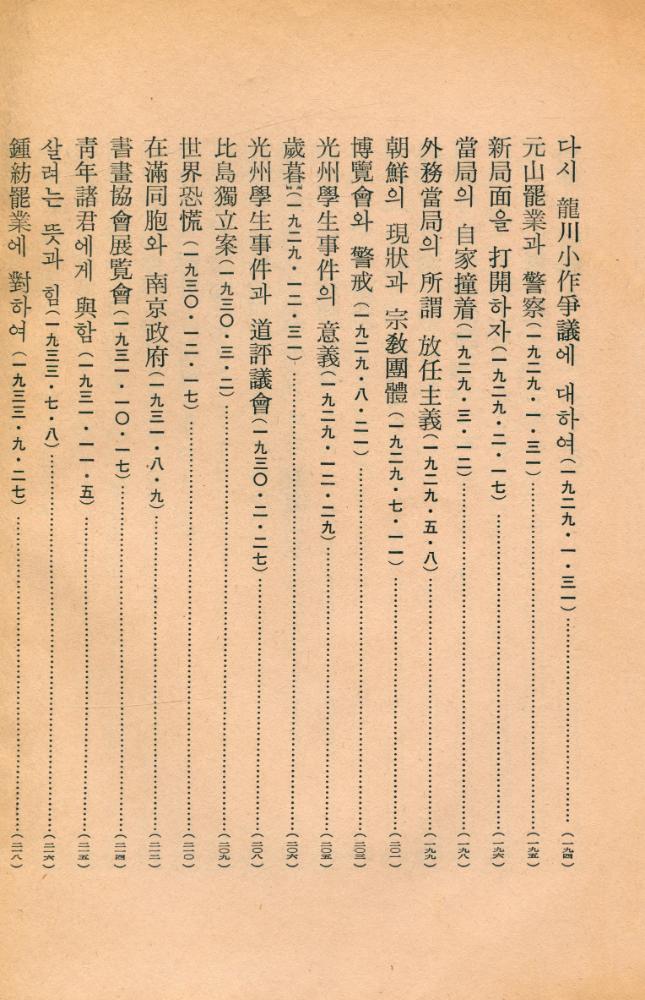 다시 龍川小作爭議에 대하여(一九二九・一・三一)………(一九四)
元山罷業과 警察(一九二九・一・三一)………(一九五)
新局面을 打開하자(一九二九・二・一七)………(一九六)
當局의 自家撞着(一九二九・三・一二)………(一九八)
外務當局의 所謂 放任主義(一九二九・五・八)………(一九九)
朝鮮의 現狀과 宗敎團體(一九二九・七・一一)………(二〇一)
博覽會와 警戒(一九二九・八・二一)………(二〇三)
光州學生事件의 意義(一九二九・一二・二九)………(二〇五)
歲暮(一九二九・一二・三一)………(二〇六)
光州學生事件과 道評議會(一九三〇・二・二七)………(二〇八)
比島獨立案(一九三〇・三・二)………(二〇九)
世界恐慌(一九三〇・一二・一七)………(二一〇)
在滿同胞와 南京政府(一九三一・八・九)………(二一二)
書畫協會展覽會(一九三一・一〇・一七)………(二一四)
靑年諸君에게 與함(一九三一・一一・五)………(二一五)
살려는 뜻과 힘(一九三三・七・八)………(二一六)
鍾紡罷業에 對하여(一九三三・九・二七)………(二一八)